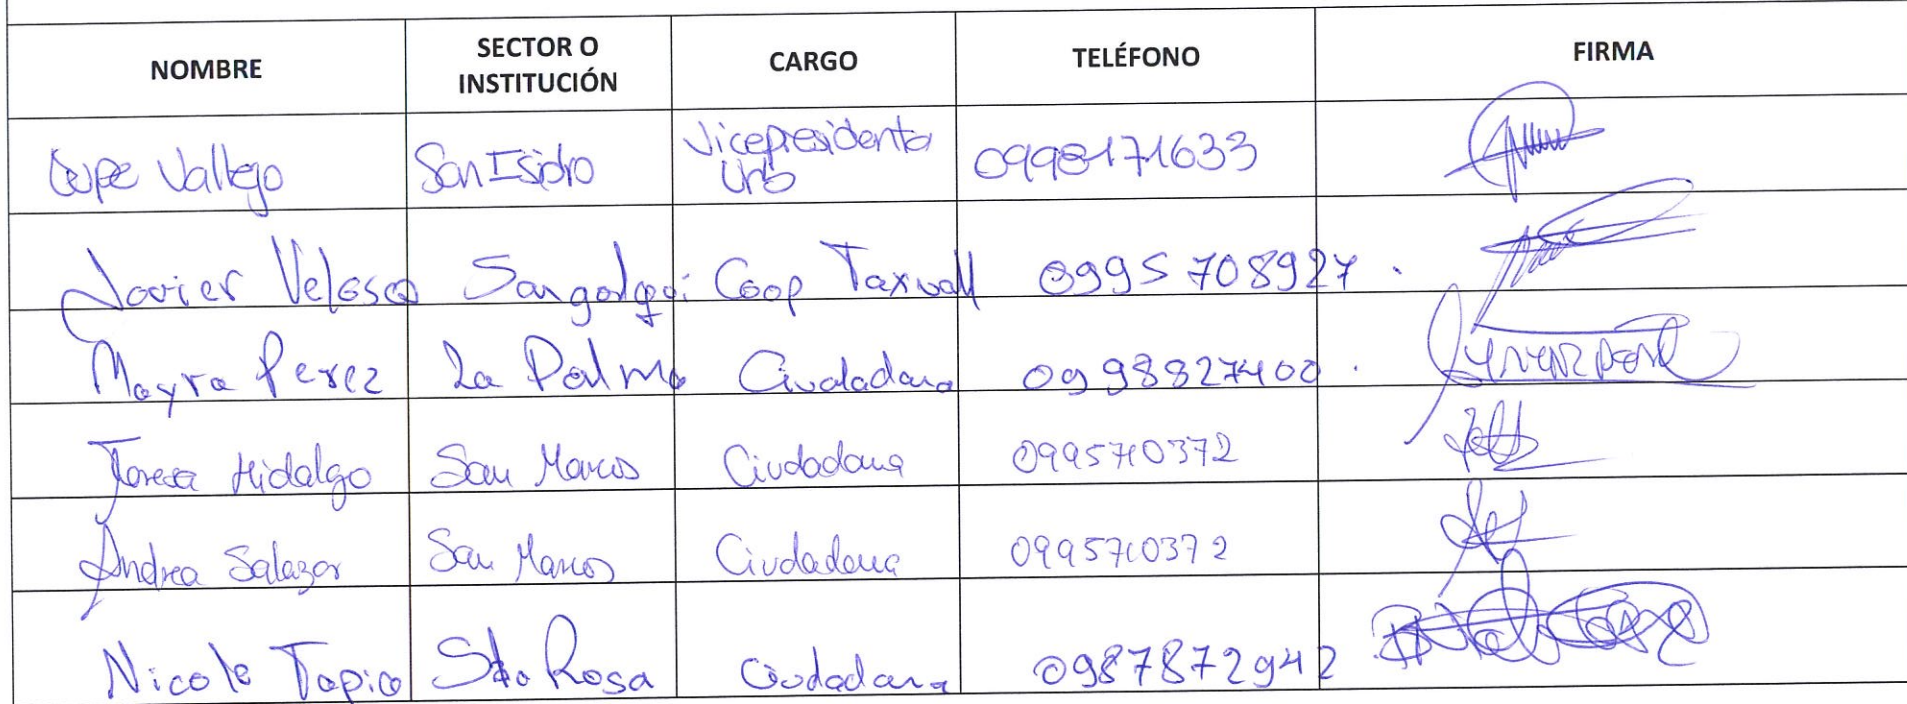 NOMBRE SECTOR O INSTITUCIÓN CARGO TELÉFONO FIRMA
Lupe Vallejo San Isidro Vicepresidenta Urb 0998171633
Javier Velasco Sangolquí Coop Taxvall 0995708927.
Mayra Perez La Palma Ciudadana 0998827400.
Teresa Hidalgo San Marcos Ciudadana 0995710372
Andrea Salazar San Marcos Ciudadana 0995710372
Nicole Tapia Sta Rosa Ciudadana 0987872942